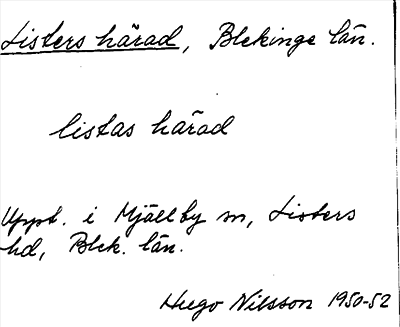 Listers härad, Blekinge län.
listas härad
Uppt. i Mjällby sn, Listers
hd, Blek. län.
Hugo Nilsson 1950-52